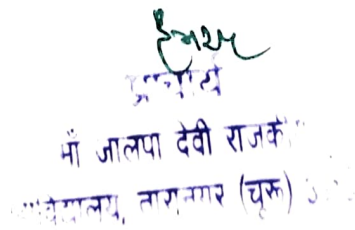 प्राचार्य
माँ जालपा देवी राजके
विद्यालय, तारानगर (चूरू)